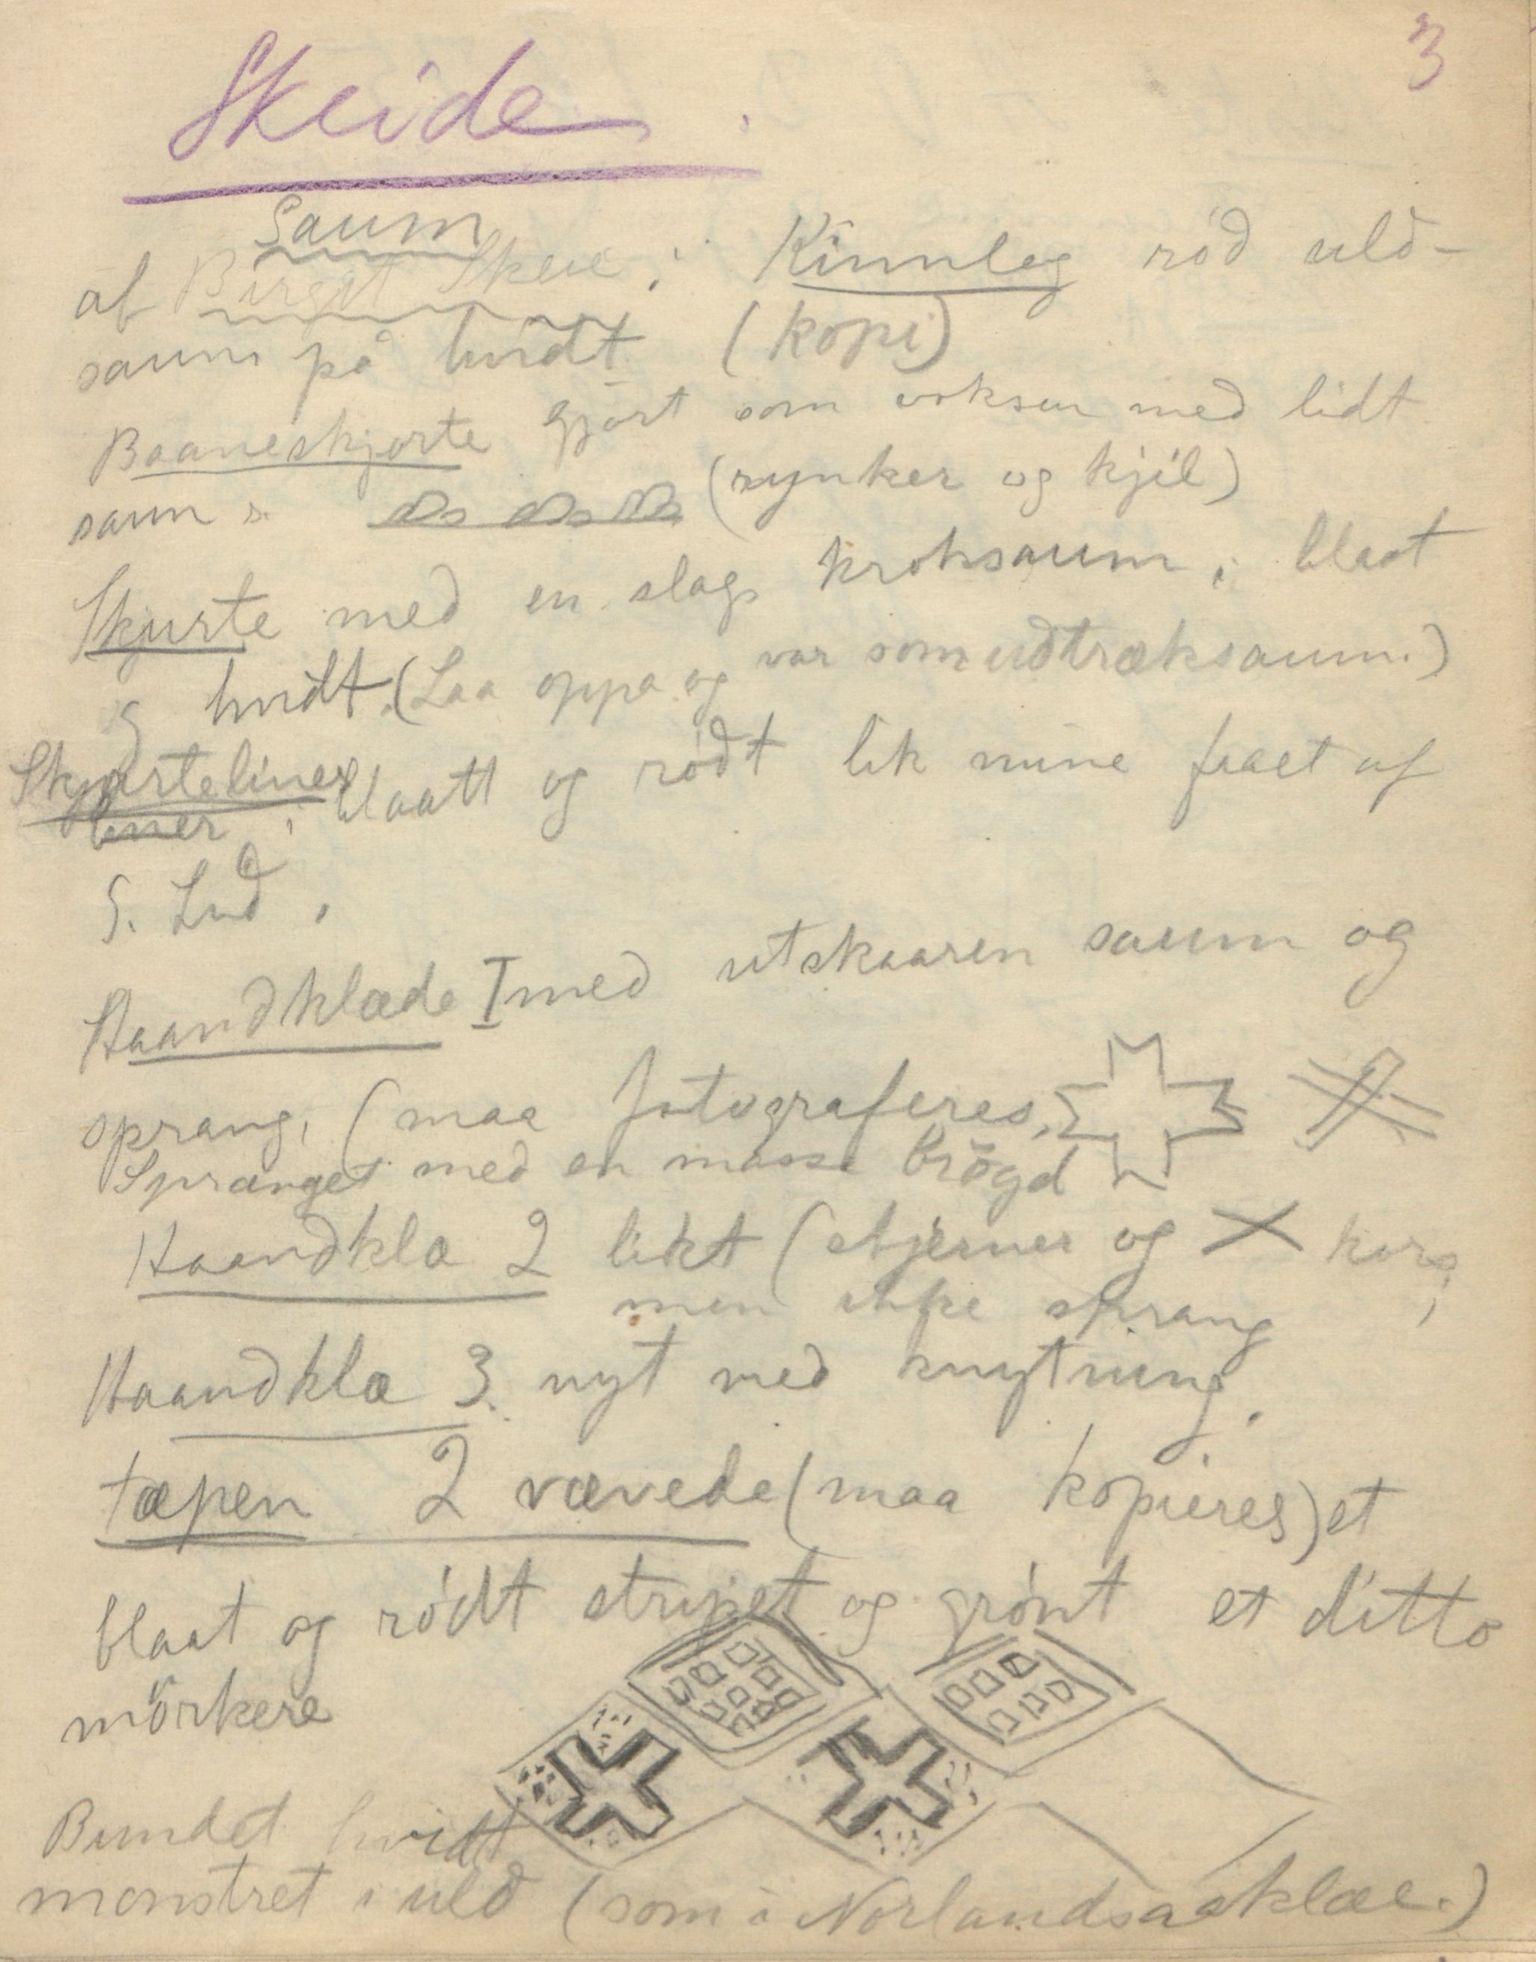 3
Skeide.
Saum
af Birgit Skeie: Kinnleg rød uld-
saum på hvidt (kopi)
Baaneskjorte gjørt som voksen med lidt
saum (rynker og kjil)
Skjurte med en slags kroksaum, blaat
og hvidt. (Laa oppa og var som udtræksaum.)
Skjurteliner blaatt og rødt lik mine fraet af
liner
S. Lud.
Haandklæde I med utskaaren saum og
sprang, (maa fotograferes,
Spranget med en masse brögd
Haandklæ 2 likt (stjerner og kors,
men ikke sprang
Haandklæ 3. nyt med knytning.
tæpen 2 vævede (maa kopieres) et
blaat og rødt stripet og grønt et ditto
mörkere
Bundet hvidt
mønstret i uld (som i Norlandsaaklæe.)